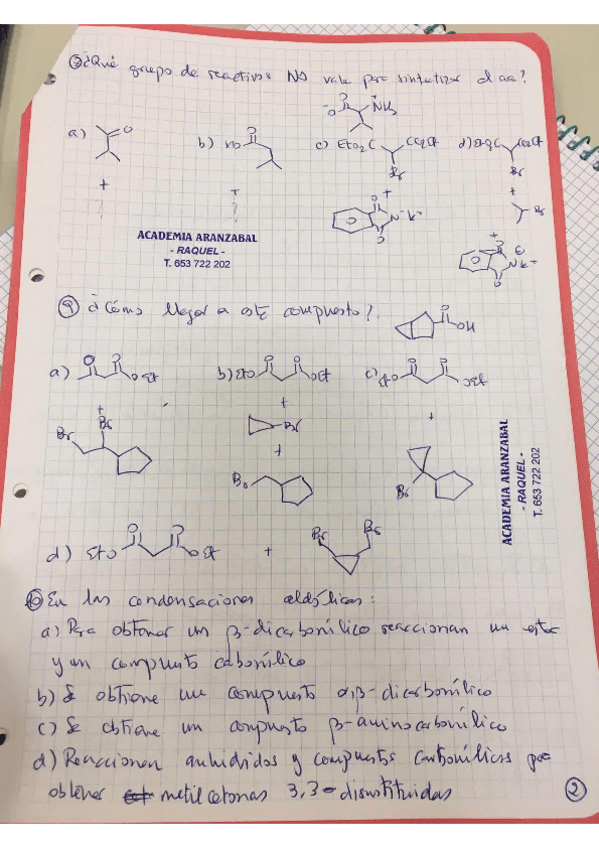 ⑧ ¿Qué grupo de reactivos NO vale para sintetizar el aa?
O
⁻O NH₃⁺
a) O
b) HO O
c) EtO₂C CO₂Et
Br
d) EtO₂C CO₂Et
Br
+
?
+
?
+
O
N⁻K⁺
O
+
Br
+
O
N K⁺
O
ACADEMIA ARANZABAL
- RAQUEL -
T. 653 722 202
⑨ ¿Cómo llegar a este compuesto?
O
OH
a) O O OEt
b) EtO O O OEt
c) EtO O O OEt
+
Br Br
+
Br
+
Br
+
Br
ACADEMIA ARANZABAL
- RAQUEL -
T. 653 722 202
d) EtO O O OEt + Br Br
⑩ En las condensaciones aldólicas:
a) Para obtener un β-dicarbonílico reaccionan un ester
y un compuesto carbonílico
b) Se obtiene un compuesto α,β-dicarbonílico
c) Se obtiene un compuesto β-aminocarbonílico
d) Reaccionan anhidridos y compuestos carbonílicos para
obtener metilcetonas 3,3-disustituidas
②